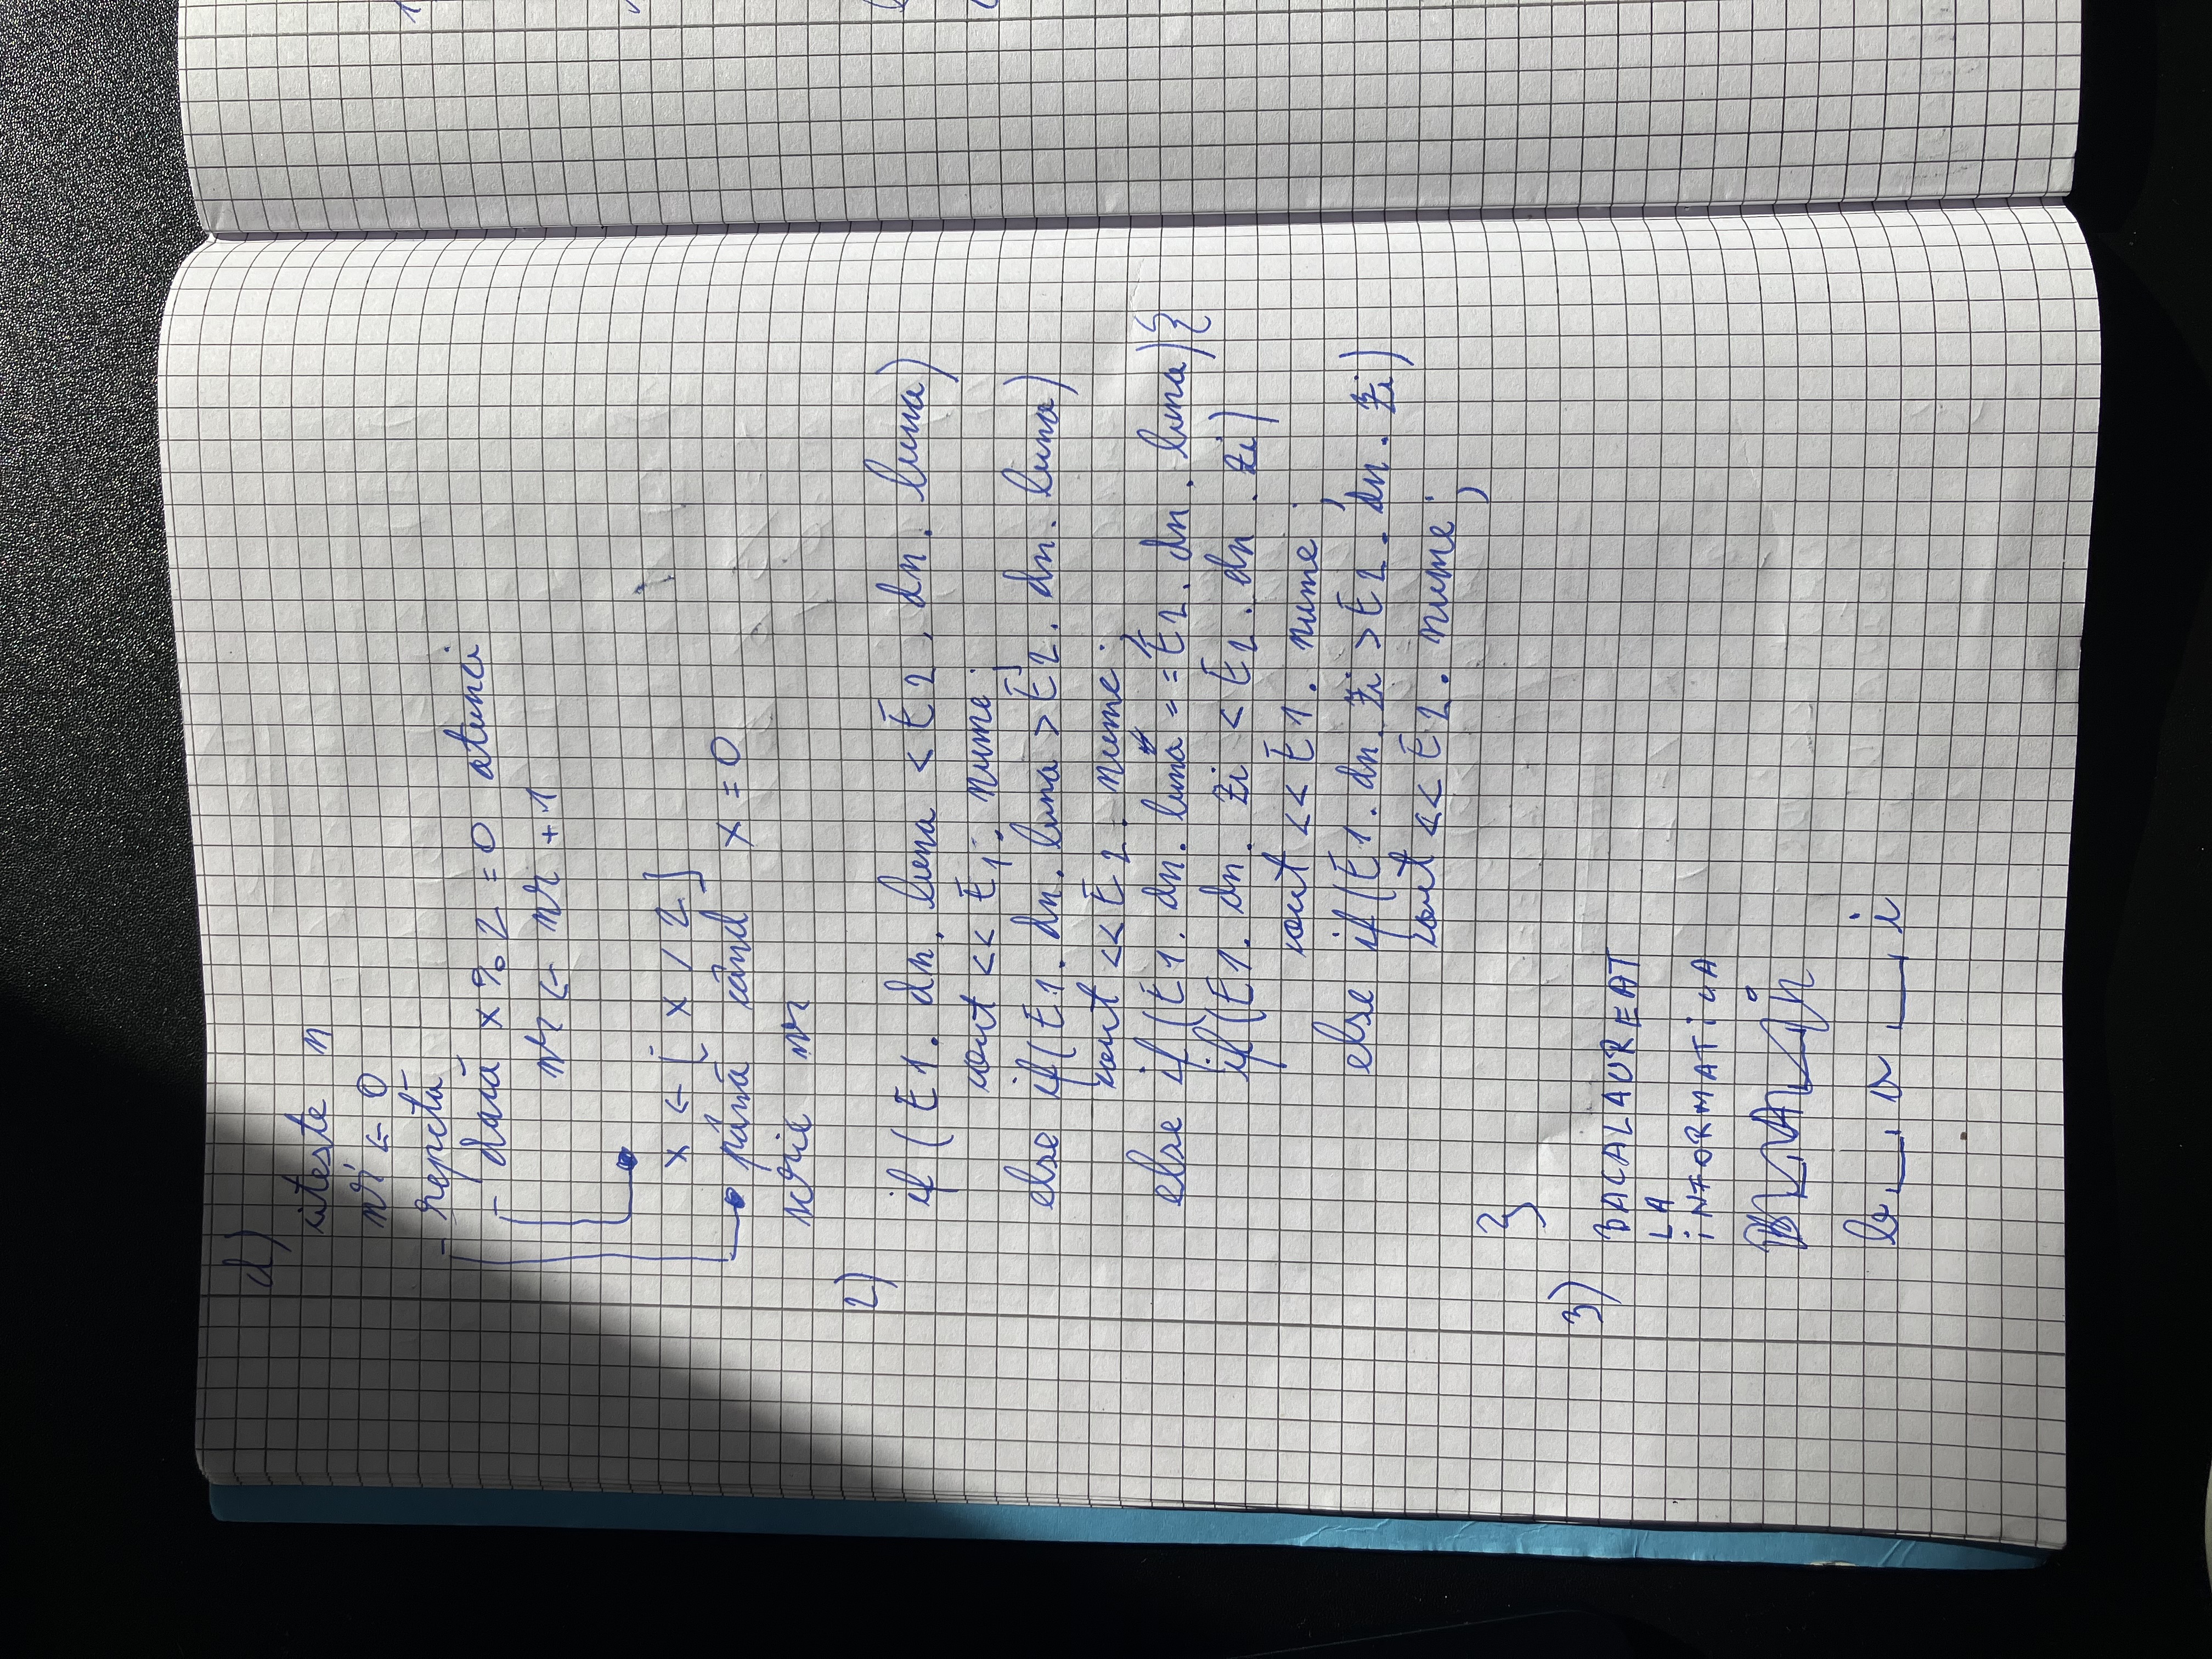 d)
citește n
nr ← 0
repetă
dacă x % 2 = 0 atunci
nr ← nr + 1
x ← [x / 2]
până când x = 0
scrie nr
2)
if (E1. dn. luna < E2. dn. luna)
cout << E1. nume;
else if (E1. dn. luna > E2. dn. luna)
cout << E2. nume;
else if (E1. dn. luna == E2. dn. luna){
if (E1. dn. zi < E2. dn. zi)
cout << E1. nume;
else if (E1. dn. zi > E2. dn. zi)
cout << E2. nume;
}
3)
BACALAUREAT
LA
iNFORMATiCA
b a i